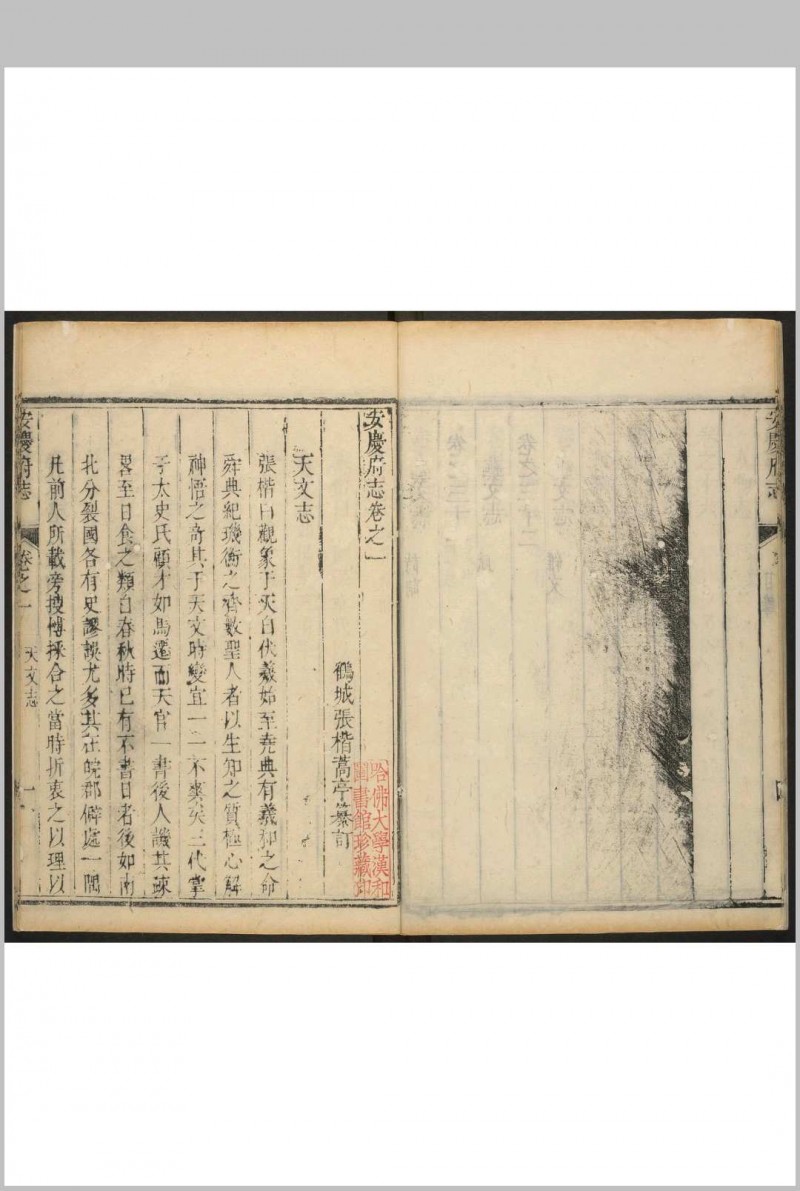 安慶府志
安慶府志卷之一
鶴城張楷蒿亭纂訂
哈佛大學漢和
圖書館珍藏印
天文志
張楷曰觀象于天自伏羲始至堯典有羲和之命
舜典紀璣衡之齊數聖人者以生知之質極心解
神悟之奇其于天文時變宜一一不爽矣三代掌
于太史氏顧才如馬遷而天官一書後人譏其疎
畧至日食之類自春秋時已有不書日者後如南
北分裂國各有史謬誤尤多其在皖郡僻處一隅
凡前人所載旁搜博採合之當時折衷之以理以
安慶府志
卷之一
天文志
一